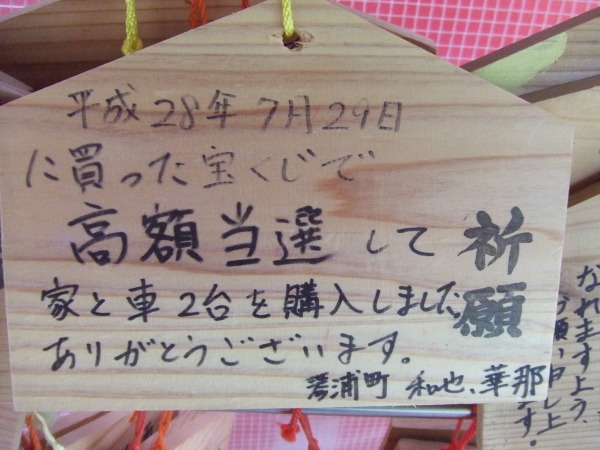 平成28年7月29日
に買った宝くじで
高額当選して
家と車2台を購入しました
ありがとうございます。
琴浦町 和也、華那
祈願
なれますよう、
お願い申し上
ます。